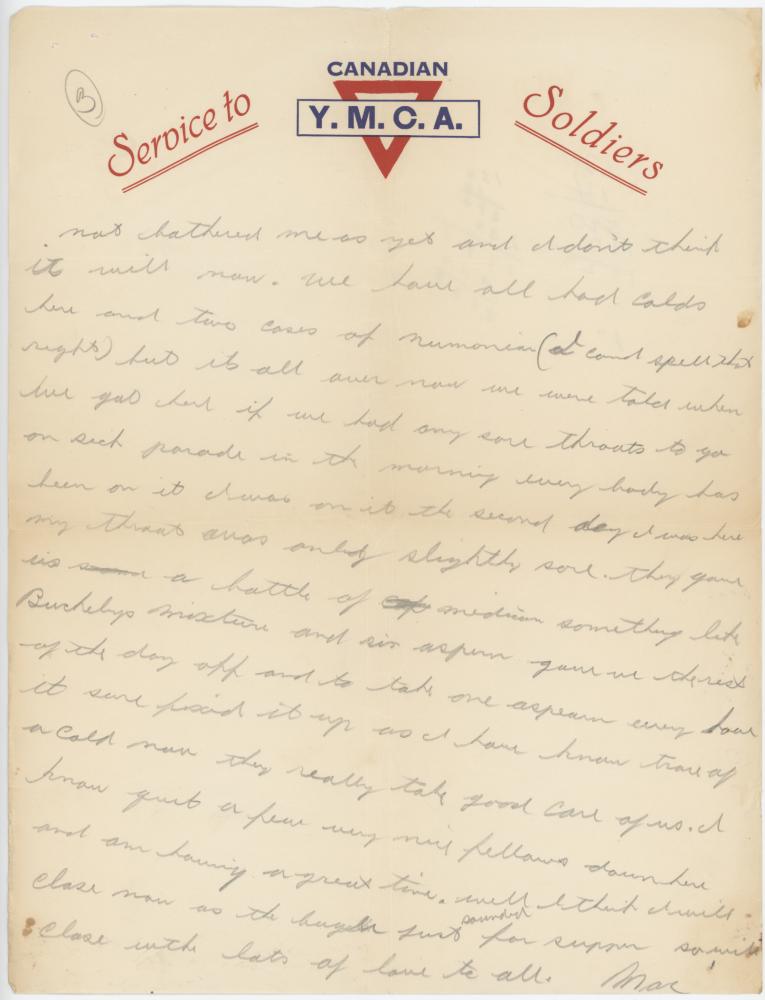 CANADIAN
Y. M. C. A.
Service to Soldiers
B
not bathered me as yet and I don't think
it will now. We have all had colds
here and two cases of numonia (I cand spell that
right) but its all over now we were told when
we got here if we had any sore throats to go
on seck parade in the morning every body has
been on it I was on it the second day I was here
my throat was only slightly sore. they gave
us a bottle of medicine something like
Buckelys mixture and six aspern gave us the rest
of the day off and to take one aspearn every hour
it sure fixed it up as I have know trace of
a cold now they really take good care of us. I
know quit a few very nice fellows down here
and am having a great time. well I think I will
close now as the bugle just sounded for supper so will
close with lots of love to all. Mac